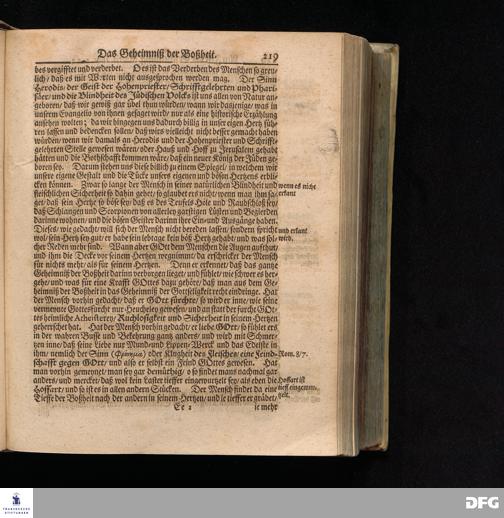 Das Geheimniß der Boßheit. 219
bes vergifftet und verderbet. O es ist das Verderben des Menschen so greu-
lich/ daß es mit Worten nicht ausgesprochen werden mag. Der Sinn
Herodis/ der Geist der Hohenpriester/ Schrifftgelehrten und Phari-
säer/ und die Blindheit des Jüdischen Volcks ist uns allen von Natur an-
gebohren/ daß wir gewiß gar übel thun würden/ wann wir dasjenige/ was in
unserem Evangelio von ihnen gesaget wird/ nur als eine historische Erzählung
ansehen wolten; da wir hingegen uns dadurch billig in unser eigen Hertz füh-
ren lassen und bedencken sollen/ daß wirs vielleicht nicht besser gemacht haben
würden/ wenn wir damals an Herodis und der Hohenpriester und Schrifft-
gelehrten Stelle gewesen wären/ oder Hauß und Hoff zu Jerusalem gehabt
hätten und die Bothschafft kommen wäre/ daß ein neuer König der Jüden ge-
boren sey. Darum stehen uns diese billich zu einem Spiegel/ in welchem wir
unsere eigene Gestalt und die Tücke unsers eigenen und bösen Hertzens erbli-
cken können. Zwar so lange der Mensch in seiner natürlichen Blindheit und
fleischlichen Sicherheit so dahin gehet/ so glaubet ers nicht/ wenn man ihm sa-
get/ daß sein Hertz so böß sey/ daß es des Teufels Höle und Raubschloß sey/
daß Schlangen und Scorpionen von allerley garstigen Lüsten und Begierden
darinne wohnen/ und die bösen Geister darinn ihre Ein- und Ausgänge haben.
Dieses/ wie gedacht/ will sich der Mensch nicht bereden lassen/ sondern spricht
wol/ sein Hertz sey gut/ er habe sein lebtage kein böß Hertz gehabt/ und was sol-
cher Reden mehr sind. Wann aber GOtt dem Menschen die Augen aufthut/
und ihm die Decke vor seinem Hertzen wegnimmt/ da erschricket der Mensch
für nichts mehr/ als für seinem Hertzen. Denn er erkennet/ daß das gantze
Geheimniß der Boßheit darinn verborgen lieget/ und fühlet/ wie schwer es her-
gehe/ und was für eine Krafft GOttes dazu gehöre/ daß man aus dem Ge-
heimniß der Boßheit in das Geheimniß der Gottseligkeit recht eindringe. Hat
der Mensch vorhin gedacht/ daß er GOtt fürchte/ so wird er inne/ wie seine
vermeynte Gottesfurcht nur Heucheley gewesen/ und an statt der furcht GOt-
tes heimliche Atheisterey/ Ruchlosigkeit und Sicherheit in seinem Hertzen
geherrschet hat. Hat der Mensch vorhin gedacht/ er liebe GOtt/ so fühlet ers
in der wahren Busse und Bekehrung gantz anders/ und wird mit Schmer-
tzen inne/ daß seine Liebe nur Mund- und Lippen-Werck und das Edelste in
ihm/ nemlich der Sinn (Φρόνημα) oder Klugheit des Fleisches/ eine Feind-
schafft gegen GOtt/ und also er selbst ein Feind GOttes gewesen. Hat
man vorhin gemeynet/ man sey gar demüthig/ so findet mans nachmal gar
anders/ und mercket/ daß wol kein Laster tieffer eingewurtzelt sey/ als eben die
Hoffart/ und so ist es in allen andern Stücken. Der Mensch findet da eine
Tieffe der Boßheit nach der andern in seinem Hertzen/ und je tieffer er gräbet/
Ee 2 je mehr
wenn es nicht
erkant
und erkant
wird.
Rom. 8/7.
Hoffart ist
tieff eingewur-
tzelt.
FRANCKESCHE
STIFTUNGEN
DFG